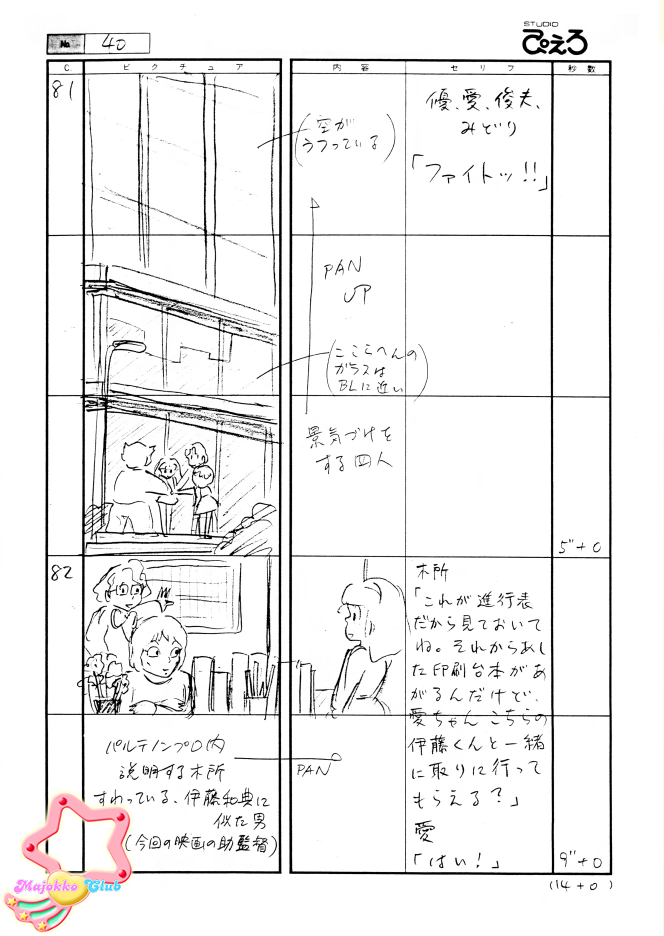 No. 40
STUDIO
ぴえろ
C. ピクチュア 内容 セリフ 秒数
81
(空が
うつっている)
優、愛、俊夫、
みどり
「ファイトッ!!」
PAN
UP
(ここらへんの
ガラスは
BLに近い)
景気づけを
する四人
5"+0
82
木所
「これが進行表
だから見ておいて
ね。それからあし
た印刷台本があ
がるんだけど、
愛ちゃんこちらの
伊藤くんと一緒
に取りに行って
もらえる?」
愛
「はい!」
パルテノンプロ内
説明する木所
すわっている、伊藤和典に
似た男
(今回の映画の助監督)
PAN
9"+0
(14+0)
Majokko Club